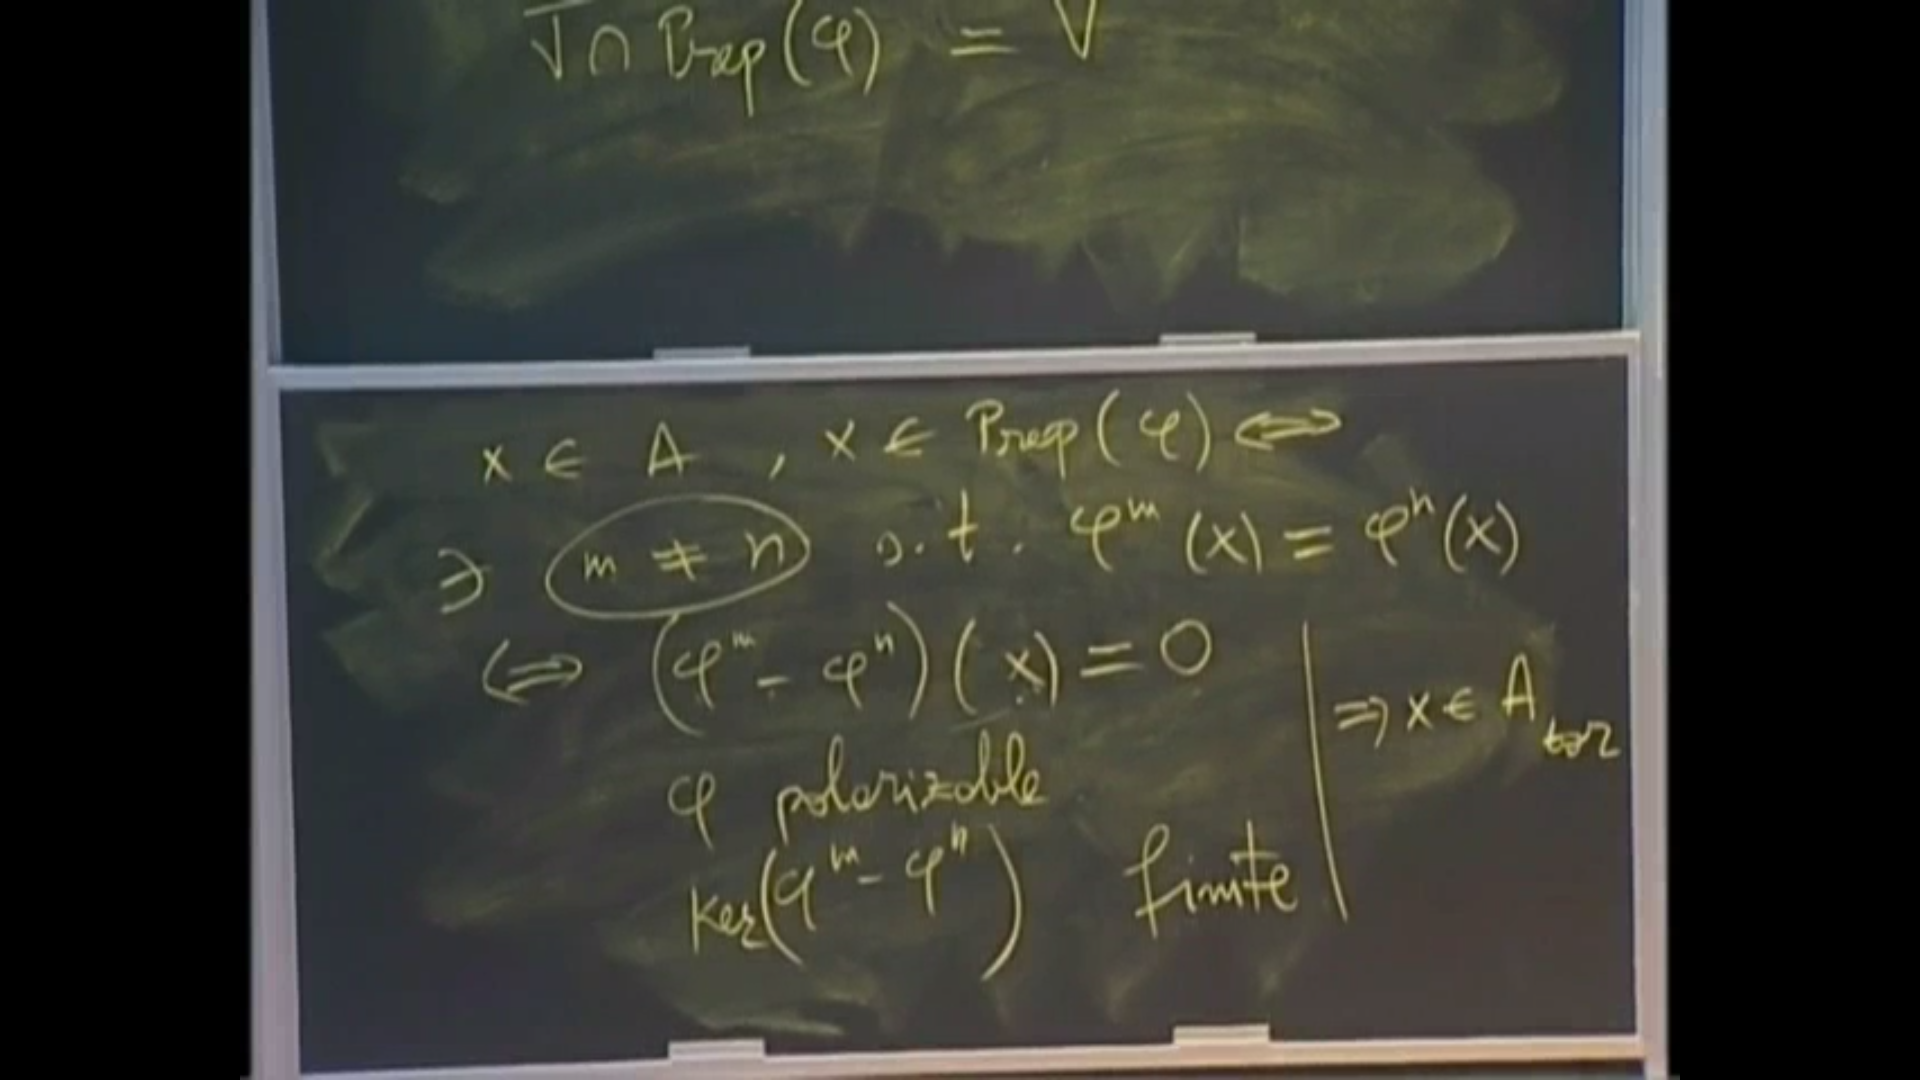 V ∩ Prep(φ) = V
x ∈ A , x ∈ Prep(φ) ⇔
∃ m ≠ n s.t. φ^m (x) = φ^n (x)
⇔ (φ^m - φ^n)(x) = 0
⇒ x ∈ A_tor
φ polarizable
Ker(φ^m - φ^n) finite